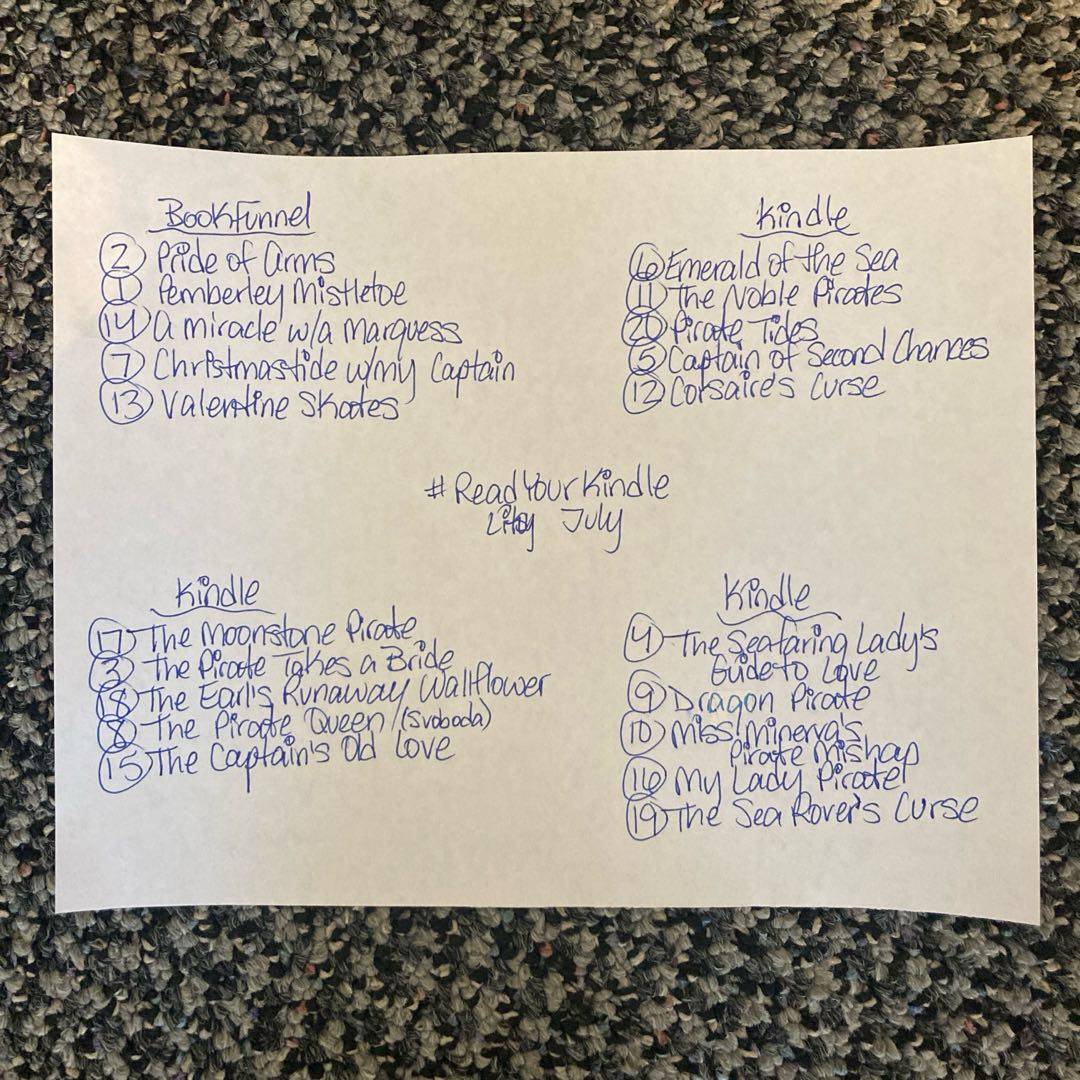 BookFunnel
2 Pride of Arms
1 Pemberley Mistletoe
14 A Miracle w/a Marquess
7 Christmastide w/my Captain
13 Valentine Skates
Kindle
6 Emerald of the Sea
11 The Noble Pirates
20 Pirate Tides
5 Captain of Second Chances
12 Corsaire's Curse
#ReadYourKindle
July
Kindle
17 The Moonstone Pirate
3 The Pirate Takes a Bride
18 The Earl's Runaway Wallflower
8 The Pirate Queen (Svoboda)
15 The Captain's Old Love
Kindle
4 The Seafaring Lady's
Guide to Love
9 Dragon Pirate
10 Miss Minerva's
Pirate Mishap
16 My Lady Pirate
19 The Sea Rover's Curse